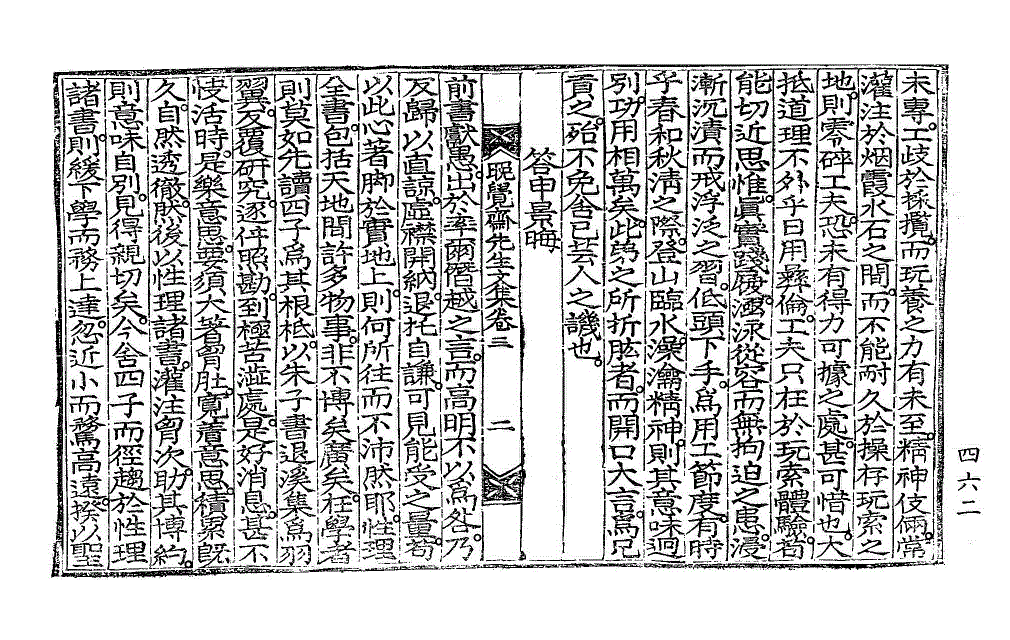 未專。工歧於採攬。而玩養之力有未至。精神伎倆。常
灌注於烟霞水石之間。而不能耐久於操存玩索之
地。則零碎工夫。恐未有得力可據之處。甚可惜也。大
抵道理不外乎日用彝倫。工夫只在於玩索體驗。苟
能切近思惟。眞實踐履。涵泳從容而無拘迫之患。浸
漸沉漬而戒浮泛之習。低頭下手。爲用工節度。有時
乎春和秋淸之際。登山臨水。澡瀹精神。則其意味迥
別。功用相萬矣。此弟之所折肱者。而開口大言。爲兄
貢之。殆不免舍己芸人之譏也。
答申景晦
晩覺齋先生文集卷三 二
前書獻愚。出於率爾僭越之言。而高明不以爲咎。乃
反歸以直諒。虛襟開納。退托自謙。可見能受之量。苟
以此心著脚於實地上。則何所往而不沛然耶。性理
全書。包括天地間許多物事。非不博矣廣矣。在學者
則莫如先讀四子爲其根柢。以朱子書退溪集爲羽
翼。反覆研究。逐件照勘。到極苦澁處。是好消息。甚不
快活時。是樂意思。要須大著胷肚。寬着意思。積累旣
久。自然透徹。然後以性理諸書。灌注胷次。助其博約。
則意味自別。見得親切矣。今舍四子而徑趨於性理
諸書。則緩下學而務上達。忽近小而騖高遠。揆以聖
四六二